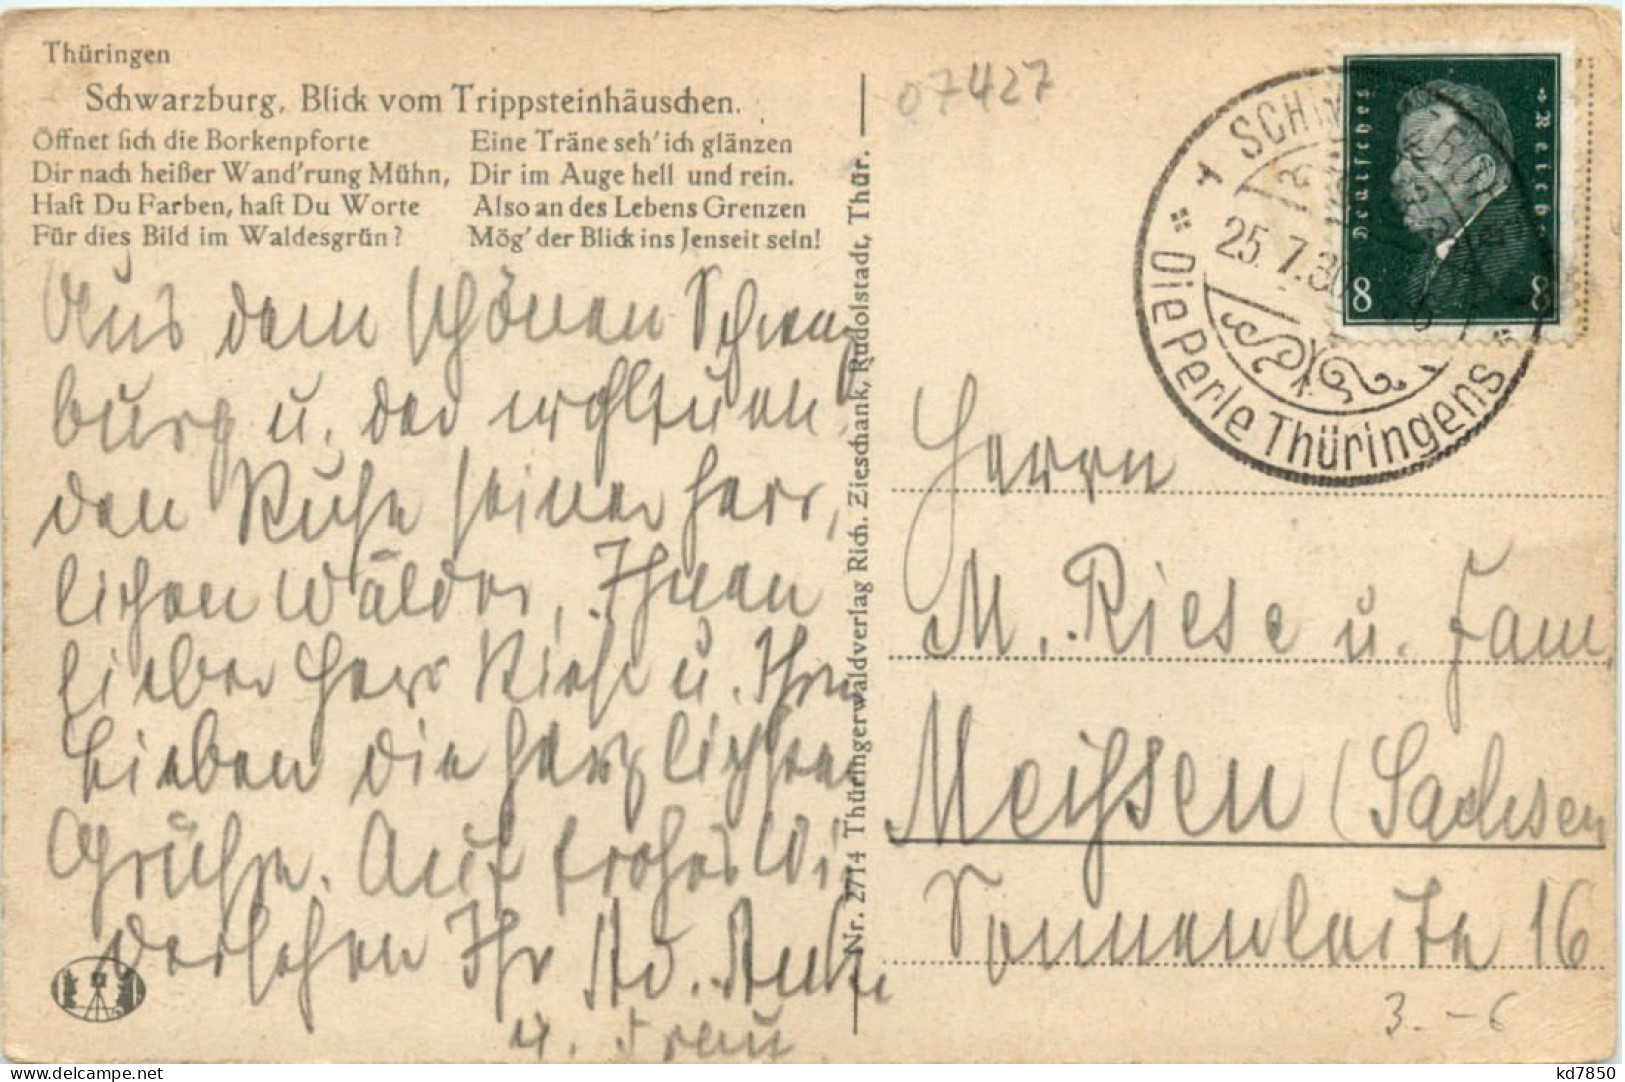 Thüringen
Schwarzburg, Blick vom Trippsteinhäuschen.
Öffnet sich die Borkenpforte
Dir nach heißer Wand'rung Mühn,
Hast Du Farben, hast Du Worte
Für dies Bild im Waldesgrün?
Eine Träne seh' ich glänzen
Dir im Auge hell und rein.
Also an des Lebens Grenzen
Mög' der Blick ins Jenseit sein!
Aus dem schönen Schwarz
burg u. der wohltuen,
den Ruhe seiner herr,
lichen Wälder, Ihnen
lieber Herr Riese u. Ihren
Lieben die herzlichsten
Grüße. Auf frohes Wi
dersehen Ihr
u. Frau
Nr. 2714 Thüringerwaldverlag Rich. Zieschank, Rudolstadt, Thür.
07427
25.7.30
Die Perle Thüringens
Deutsches Reich
8 8
Herrn
M. Riese u. Fam.
Meißen (Sachsen
Sonnenleite 16
3.-6
https://www.delcampe.net
kd7850